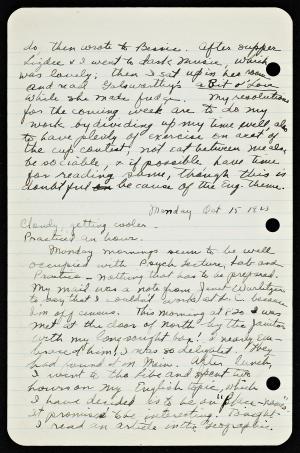 do, then wrote to Bessie. After supper
Lizdee & I went to Dark Music, which
was lovely; then I sat up in her room
and read Galsworthy's a Bit o' Love
while she made fudge. My resolutions
for the coming week are to do my
work by dividing up my time well, also
to have plenty of exercise on acct of
the cup contest, not eat between meals,
be sociable, & if possible have time
for reading some, though this is
doubtful because of the Eng. theme.
Monday Oct 15 1923
Cloudy, getting cooler.
Practiced an hour.
Monday mornings seem to be well
occupied with Psych lecture, Lab and
Practice - nothing that has to be prepared.
My mail was a note from Janet
to say that I couldn't work at h. c. because
I'm of genous. This morning at 1:20 I was
met at the door of north by the Janitor
with my long sought box! I nearly em-
braced him, I was so delighted. They
had found it in Main. After lunch,
I went to the libe and spent two
hours on my English topic, which
I have decided is to be on "place-names".
It promises to be interesting. Tonight
I read an article in the Geographic.